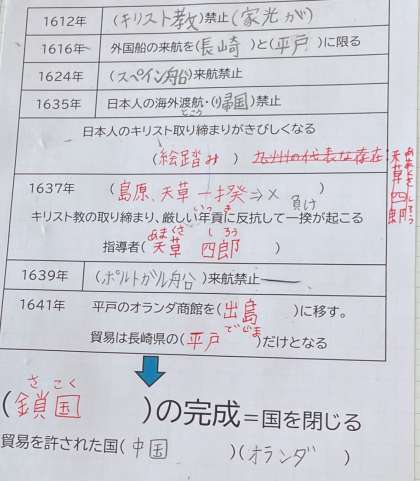 1612年 (キリスト教)禁止(家光が)
1616年 外国船の来航を(長崎)と(平戸)に限る
1624年 (スペイン船)来航禁止
1635年 日本人の海外渡航・(帰国)禁止
とこう
日本人のキリスト取り締まりがきびしくなる
(絵踏み) 九州の代表な存在:天草四郎
あまくさしろう
1637年 (島原、天草一揆⇒× )
いっき 負け
キリスト教の取り締まり、厳しい年貢に反抗して一揆が起こる
あまくさ しろう
指導者(天草 四郎 )
1639年 (ポルトガル船)来航禁止
1641年 平戸のオランダ商館を(出島 )に移す。
でじま
貿易は長崎県の(平戸 )だけとなる
さこく
(鎖国 )の完成=国を閉じる
貿易を許された国(中国 )(オランダ )